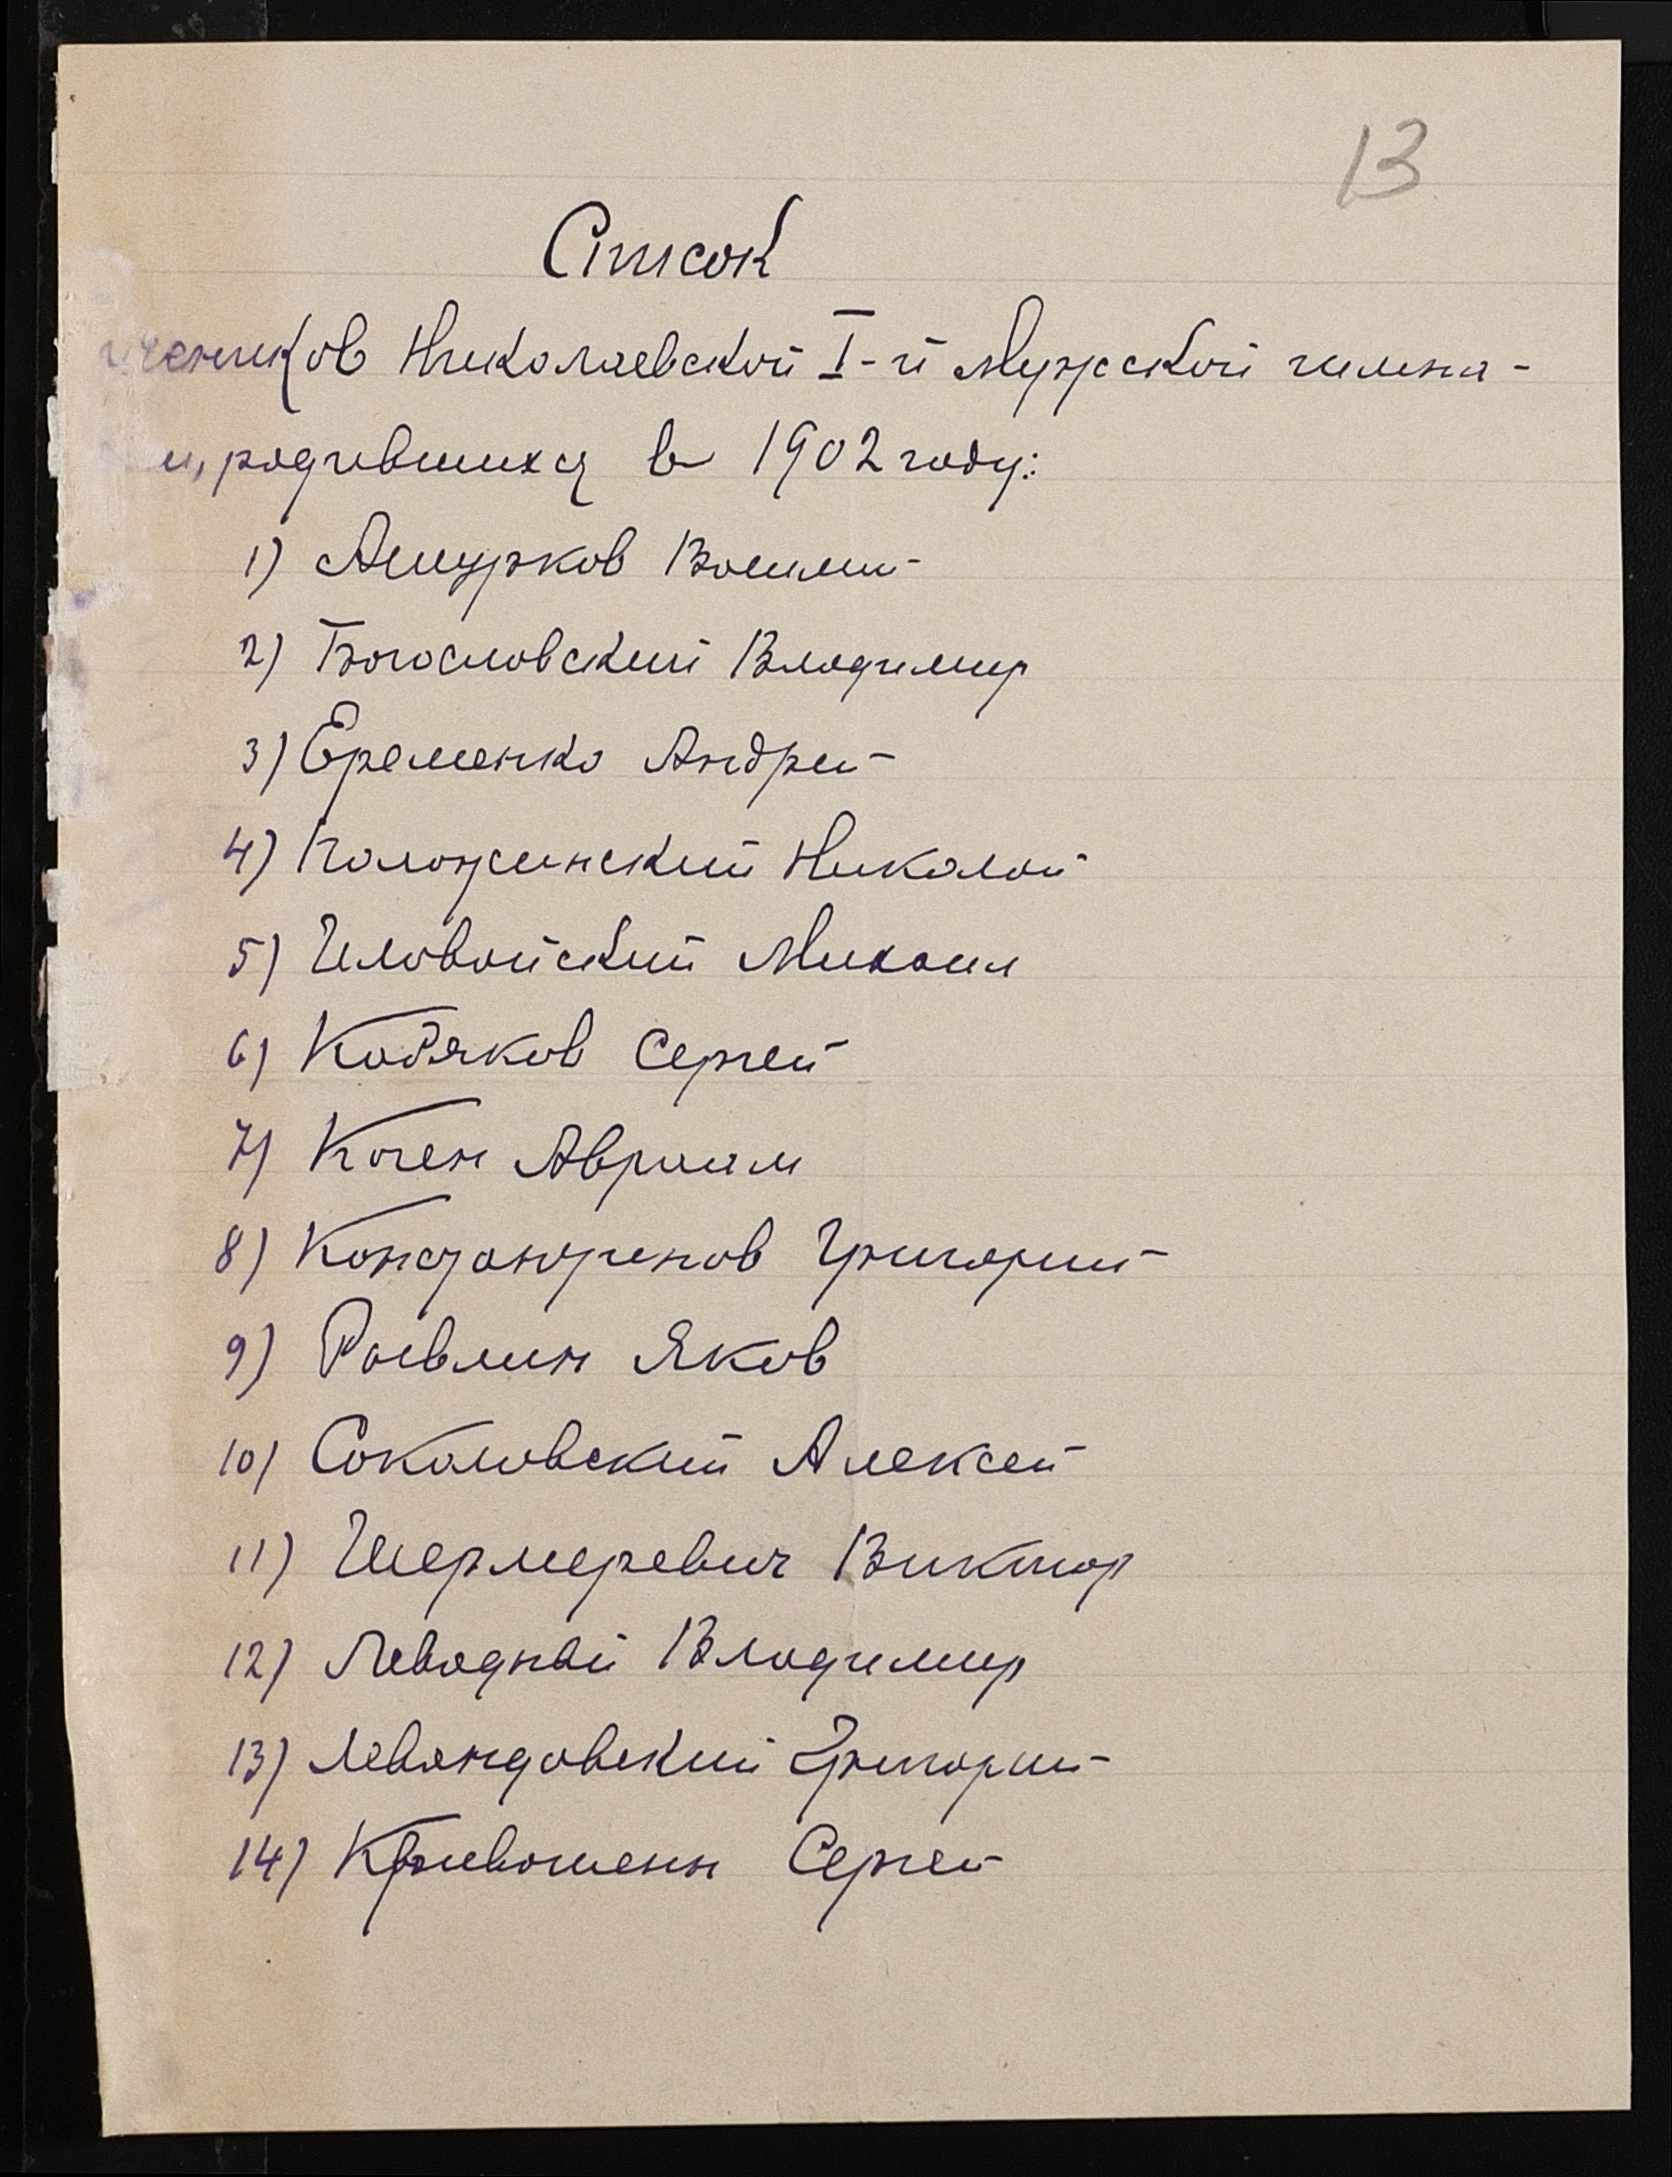 13
Список
учеников Николаевской I-й Мужской гимна-
ии, родившихся в 1902 году:
1) Ашурков Вениамин
2) Богословский Владимир
3) Еременко Андрей
4) Коложинский Николай
5) Иловайский Михаил
6) Кодяков Сергей
7) Коген Авраам
8) Константинов Григорий
9) Ривлин Яков
10) Соколовский Алексей
11) Шермеревич Виктор
12) Левадный Владимир
13) Левандовский Григорий
14) Кривошеин Сергей